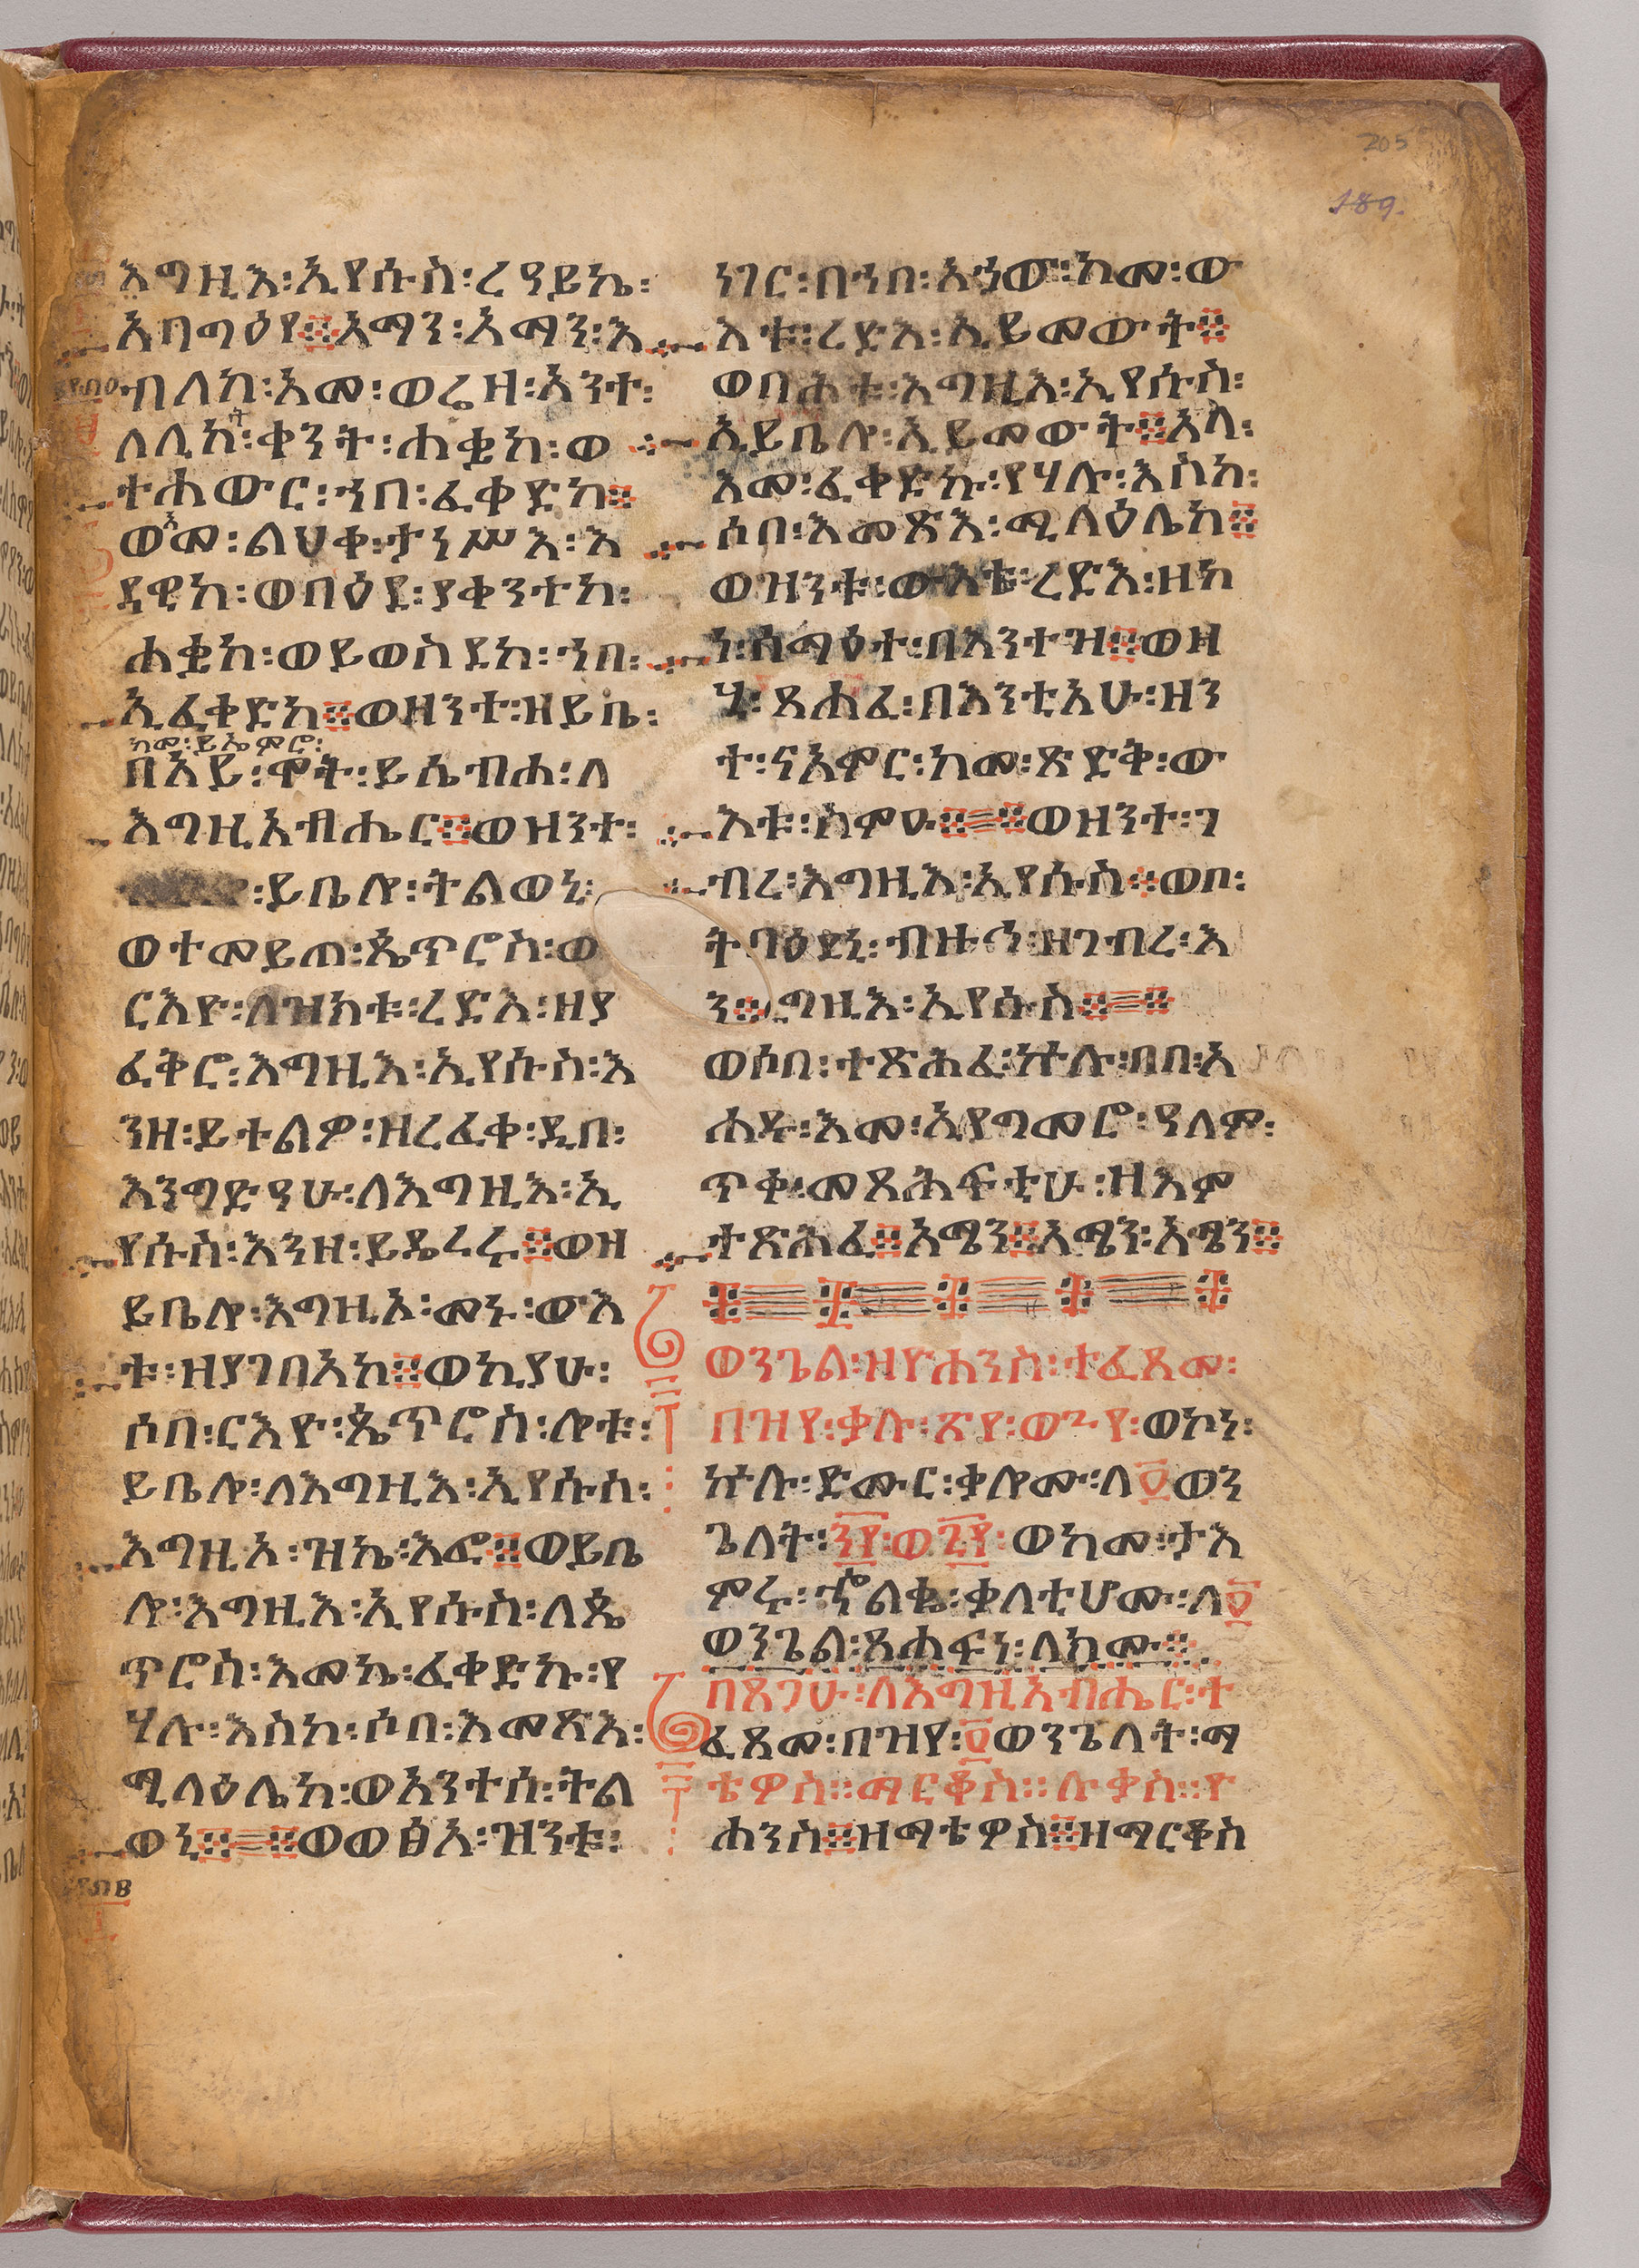 205
189.
እግዚእ፡ኢየሱስ፡ረዓይኬ፡
አባግዕየ፨አማን፡አማን፡እ
ብለከ፡አመ፡ወሬዛ፡አንተ፡
ለሊከ፡ት፡ቀንት፡ሐቌከ፡ወ
ተሐውር፡ኀበ፡ፈቀድከ፨
ወእመ፡ልህቀ፡ታነሥእ፡እ
ዴዊከ፡ወበዕደ፡ያቀንተከ፡
ሐቌከ፡ወይወስደከ፡ኀበ፡
ኢፈቀድከ፨ወዘንተ፡ዘይቤ፡
ከመ፡ይኤምሮ፡
በአይ፡ሞት፡ይሴብሐ፡ለ
እግዚአብሔር፨ወዝንተ፡
፡ይቤሎ፡ትልወኒ፡
ወተመይጠ፡ጴጥሮስ፡ወ
ርእዮ፡ለዝክቱ፡ረድእ፡ዘያ
ፈቅሮ፡እግዚእ፡ኢየሱስ፡እ
ንዘ፡ይተልዎ፡ዘረፈቀ፡ዲበ፡
እንግድዓሁ፡ለእግዚእ፡ኢ
የሱስ፡እንዘ፡ይዴረሩ፨ወዘ
ይቤሎ፡እግዚኦ፡መኑ፡ውእ
ቱ፡ዘያገበእከ፨ወኪያሁ፡
ሶበ፡ርእዮ፡ጴጥሮስ፡ሎቱ፡
ይቤሎ፡ለእግዚእ፡ኢየሱስ፡
እግዚኦ፡ዝኬ፡እፎ፨ወይቤ
ሎ፡እግዚእ፡ኢየሱስ፡ለጴ
ጥሮስ፡እመኬ፡ፈቀድኩ፡የ
ሃሉ፡እስከ፡ሶበ፡እመጽእ፡
ሚላዕሌከ፡ወአንተሰ፡ትል
ወኒ፨=፨ወወፅአ፡ዝንቱ፡
ነገር፡በኀበ፡አኀው፡ከመ፡ው
እቱ፡ረድእ፡ኢይመውት፨
ወባሕቱ፡እግዚእ፡ኢየሱስ፡
ኢይቤሎ፡ኢይመውት፨አላ፡
እመ፡ፈቀድኩ፡የሃሉ፡እስከ፡
ሶበ፡እመጽእ፡ሚላዕሌከ፨
ወዝንቱ፡ውእቱ፡ረድእ፡ዘከ
ነ፡ሰማዕተ፡በእንተዝ፨ወዘ
ሂ፡ጸሐፈ፡በእንቲአሁ፡ዘን
ተ፡ናአምር፡ከመ፡ጽድቅ፡ው
እቱ፡ስምዑ፨=፨ወዘንተ፡ገ
ብረ፡እግዚእ፡ኢየሱስ፨ወቦ፡
ት፡ባዕደኒ፡ብዙኅ፡ዘገብረ፡እ
ን፨ግዚእ፡ኢየሱስ፨=፨
ወሶበ፡ተጽሕፈ፡ኵሉ፡በበ፡አ
ሐዱ፡እመ፡ኢያግመሮ፡ዓለም፡
ጥቀ፡መጻሕፍቲሁ፡ዘእም
ተጽሕፈ፨አሜን፨አሜን፡አሜን፨
ወንጌል፡ዘዮሐንስ፡ተፈጸመ፡
በዝየ፡ቃሉ፡፳የ፡ወ፫የ፡ወኮነ፡
ኵሉ፡ድሙር፡ቃሎሙ፡ለ፬ወን
ጌላት፡፺የ፡ወ፫የ፡ወከመ፡ታእ
ምሩ፡ኆልቈ፡ቃላቲሆሙ፡ለ፬
ወንጌል፡ጸሐፍነ፡ለክሙ፨
በጸጋሁ፡ለእግዚአብሔር፡ተ
ፈጸመ፡በዝየ፡፬ወንጌላት፡ማ
ቴዎስ፡፡ማርቆስ፡፡ሉቃስ፡፡ዮ
ሐንስ፨ዘማቴዎስ፨ዘማርቆስ